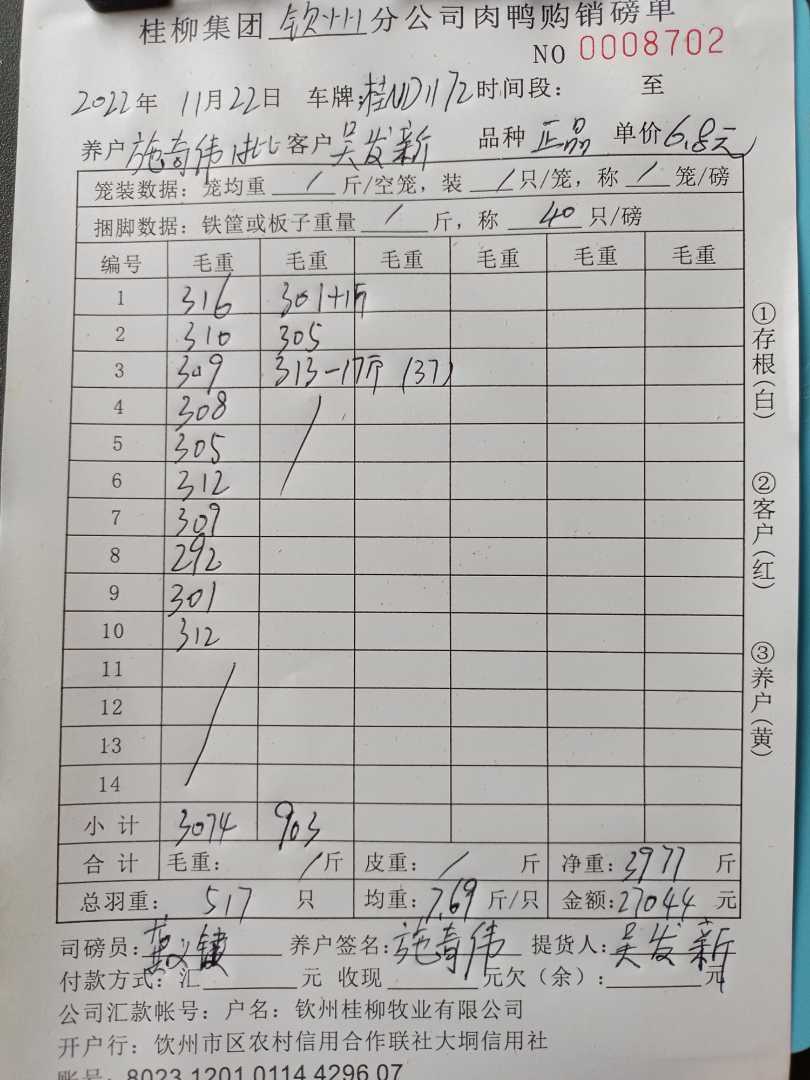 桂柳集团 钦州 分公司肉鸭购销磅单
NO 0008702
2022年 11月22日 车牌:桂ND1172 时间段: 至
养户 施奇伟 1批 客户 吴发新 品种 正品 单价 6.8元
笼装数据: 笼均重 / 斤/空笼, 装 / 只/笼, 称 / 笼/磅
捆脚数据: 铁筐或板子重量 / 斤, 称 40 只/磅
编号 毛重 毛重 毛重 毛重 毛重 毛重
1 316 301+1斤
2 310 305
3 309 313-17斤 (37)
4 308 /
5 305
6 312
7 309
8 292
9 301
10 312
11 /
12
13
14
小计 3074 903
合计 毛重: / 斤 皮重: / 斤 净重: 3977 斤
总羽重: 517 只 均重: 7.69 斤/只 金额: 27044 元
司磅员: 养户签名: 施奇伟 提货人: 吴发新
付款方式: 汇 元 收现 元欠(余): 元
公司汇款帐号: 户名: 钦州桂柳牧业有限公司
开户行: 钦州市区农村信用合作联社大垌信用社
账号: 8023 1201 0114 4296 07
①存根(白)
②客户(红)
③养户(黄)